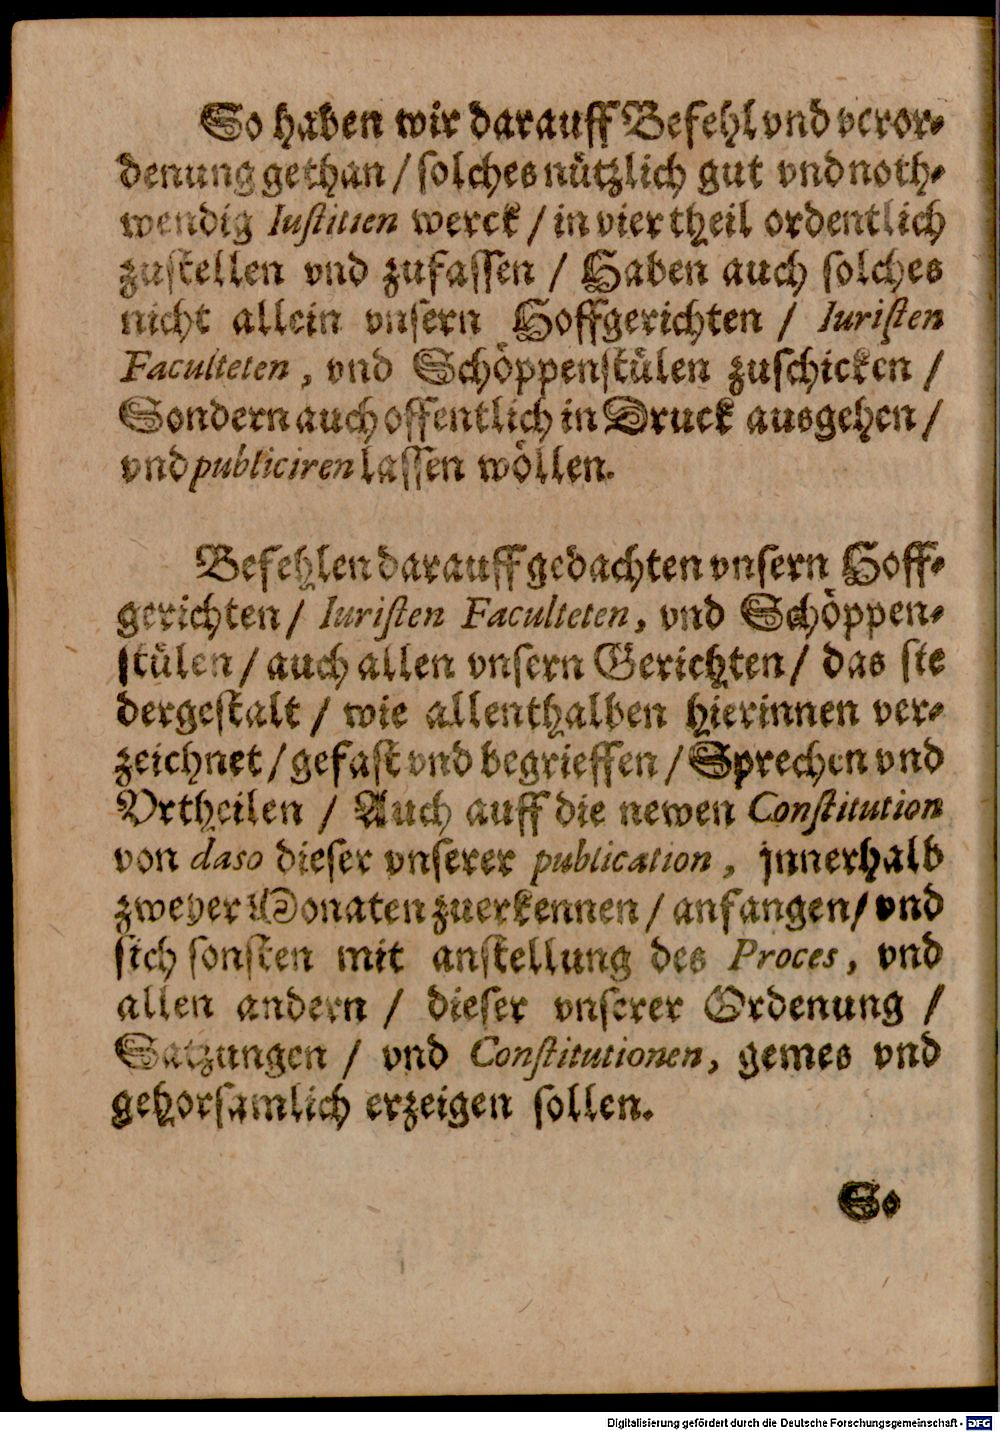 So haben wir darauff Befehl vnd veror⸗
denung gethan / solches nützlich gut vnd noth⸗
wendig Iustitien werck / in vier theil ordentlich
zustellen vnd zufassen / Haben auch solches
nicht allein vnsern Hoffgerichten / Iuristen
Faculteten, vnd Schöppenstülen zuschicken /
Sondern auch offentlich in Druck ausgehen /
vnd publiciren lassen wöllen.
Befehlen darauff gedachten vnsern Hoff⸗
gerichten / Iuristen Faculteten, vnd Schöppen⸗
stülen / auch allen vnsern Gerichten / das sie
dergestalt / wie allenthalben hierinnen ver⸗
zeichnet / gefast vnd begrieffen / Sprechen vnd
Vrtheilen / Auch auff die newen Constitution
von dato dieser vnserer publication, innerhalb
zweyer Monaten zuerkennen / anfangen / vnd
sich sonsten mit anstellung des Proces, vnd
allen andern / dieser vnserer Ordenung /
Satzungen / vnd Constitutionen, gemes vnd
gehorsamlich erzeigen sollen.
So
Digitalisierung gefördert durch die Deutsche Forschungsgemeinschaft - DFG